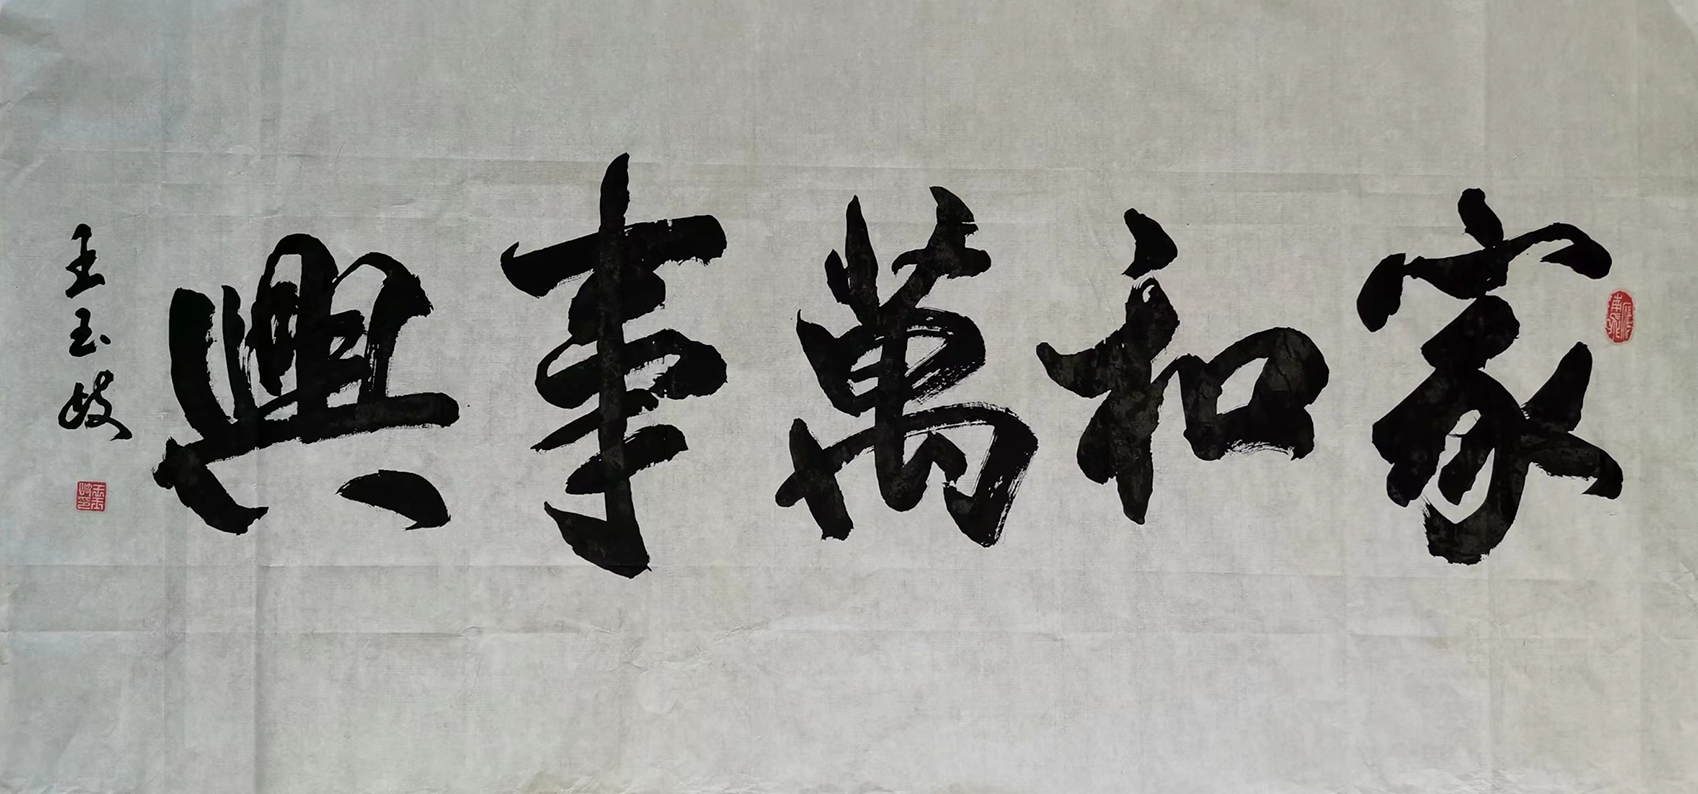 家和萬事興
王玉歧